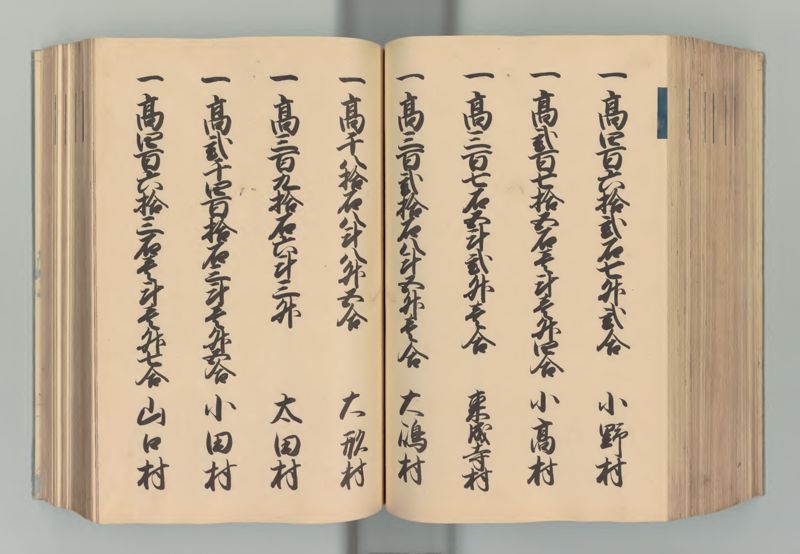 一高四百六拾弐石七升弐合 小野村
一高弐百七拾五石壱斗壱升四合 小高村
一高三百七石五斗弐升壱合 東成寺村
一高三百弐拾石八斗五升壱合 大嶋村
一高千八拾石八斗八升五合 大形村
一高三百九拾石六斗三升 太田村
一高弐千四百拾石三斗壱升六合 小田村
一高四百六拾三石壱斗壱升七合 山口村